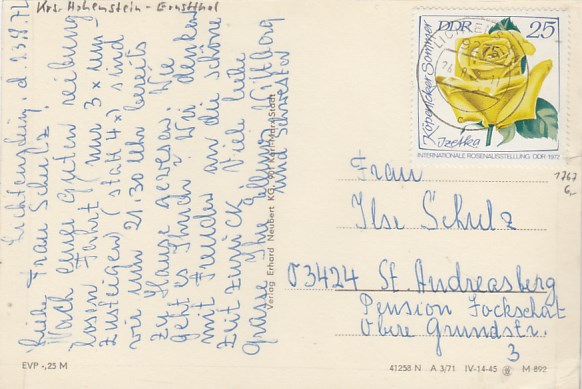 Krs. Hohenstein-Ernstthal
Lichtenstein, d. 23.9.72
Liebe Frau Schulz!
Nach einer guten reibungs
losen Fahrt (nur 3 x um-
zusteigen statt 4x) sind
wir um 21.30 Uhr bereits
zu Hause gewesen. Wie
geht es Ihnen? Wir denken
mit Freuden an die schöne
Zeit zurück. Viele liebe
Grüsse Ihre
und Schwester
Verlag Erhard Neubert KG, 901 Karl-Marx-Stadt
DDR 25
Köpenicker Sommer
Izetka
INTERNATIONALE ROSENAUSSTELLUNG DDR 1972
1767
6,-
Frau
Ilse Schulz
03424 St. Andreasberg
Pension Lockschat
Obere Grundstr.
3
EVP -,25 M
41258 N A 3/71 IV-14-45 M 892